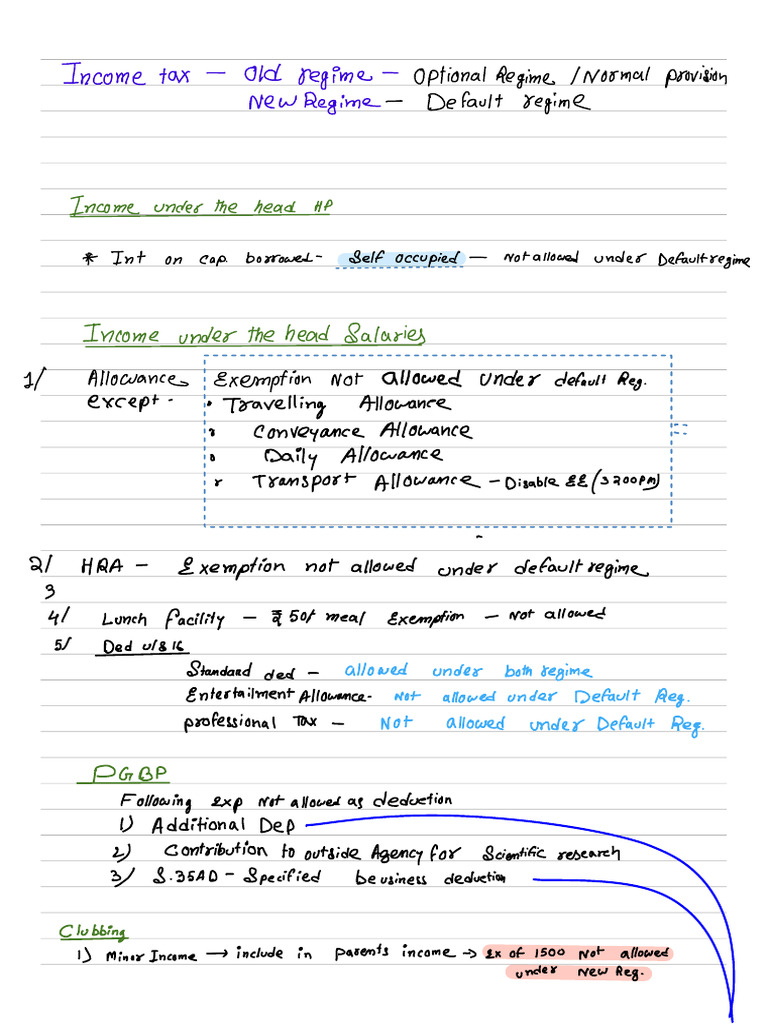 Income tax — Old regime — Optional Regime / Normal provision
New Regime — Default regime
Income under the head HP
* Int on cap. borrowed - Self occupied — Not allowed under Default regime
Income under the head Salaries
1/ Allowances Exemption Not allowed under default Reg.
except - • Travelling Allowance
• Conveyance Allowance
• Daily Allowance
• Transport Allowance — Disable EE (3200pm)
2/ HRA — Exemption not allowed under default regime
3
4/ Lunch facility — ₹ 50/ meal Exemption — Not allowed
5/ Ded u/s 16
Standard ded — allowed under both regime
Entertailment Allowance - Not allowed under Default Reg.
professional Tax — Not allowed under Default Reg.
PGBP
Following Exp Not allowed as deduction
1) Additional Dep
2) Contribution to outside Agency for Scientific research
3) S.35AD — Specified beusiness deduction
Clubbing
1) Minor Income → include in parents income → Ex of 1500 Not allowed
under New Reg.